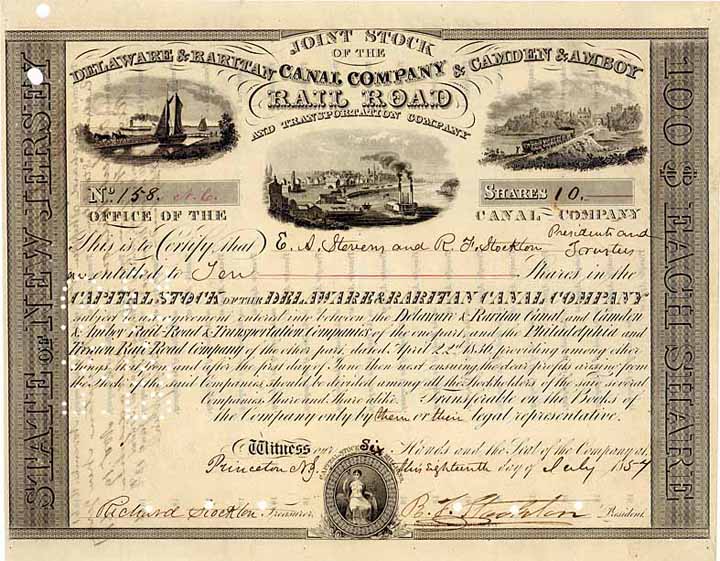 JOINT STOCK
OF THE
DELAWARE & RARITAN CANAL COMPANY & CAMDEN & AMBOY
RAIL ROAD
AND TRANSPORTATION COMPANY
STATE OF NEW JERSEY
100 $ EACH SHARE
No. 158. N. C.
SHARES 10.
OFFICE OF THE CANAL COMPANY
This is to Certify, that E. A. Stevens and R. F. Stockton Presidents and Trustees
entitled to Ten Shares in the
CAPITAL STOCK OF THE DELAWARE & RARITAN CANAL COMPANY
subject to an agreement entered into between the Delaware & Raritan Canal, and Camden
& Amboy Rail-Road & Transportation Companies of the one part, and the Philadelphia and
Trenton Rail Road Company of the other part, dated April 22d 1836, providing among other
things, that from and after the first day of June then next ensuing the clear profits arising from
the Stock of the said Companies should be divided among all the Stockholders of the said several
Companies Share and Share alike. Transferable on the Books of
the Company only by them or their legal representative.
Witness our Hands and the Seal of the Company at
Princeton NJ. this eighteenth day of July 1854
Six
Richard Stockton Treasurer.
R. F. Stockton President.